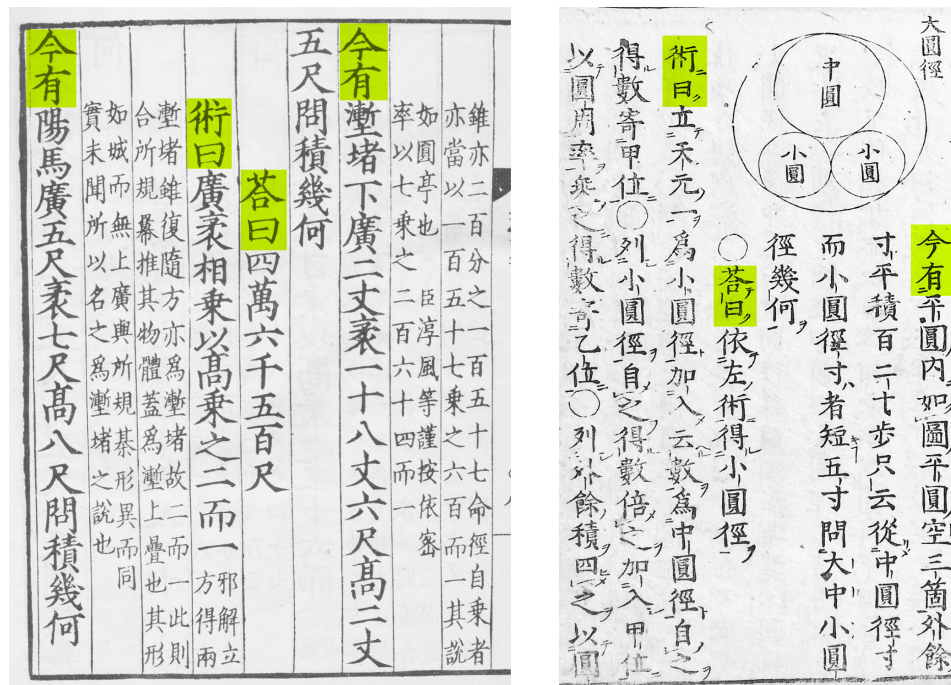 錐亦二百分之一百五十七命徑自乘者
亦當以一百五十七乘之六百而一其說
如圓亭也 臣淳風等謹按依密
率以七乘之二百六十四而一
今有壍堵下廣二丈袤一十八丈六尺髙二丈
五尺問積幾何
荅曰四萬六千五百尺
術曰廣袤相乘以髙乘之二而一
邪解立
方得兩
壍堵雖復隨方亦爲壍堵故二而一此則
合所規棊推其物體蓋爲壍上疊也其形
如城而無上廣與所規棊形異而同
實未聞所以名之爲壍堵之說也
今有陽馬廣五尺袤七尺髙八尺問積幾何
大圓徑
中圓
小圓
小圓
今有平圓内如圖平圓空三箇外餘
寸平積百二十歩只云從中圓徑寸
而小圓徑寸者短五寸問大中小圓
徑幾何
○荅曰依左術得小圓徑
術曰立天元一爲小圓徑加入云數爲中圓徑自之
得數寄甲位○列小圓徑自之得數倍之加入甲位
以圓周率乘之得數寄乙位○列外餘積四之以圓